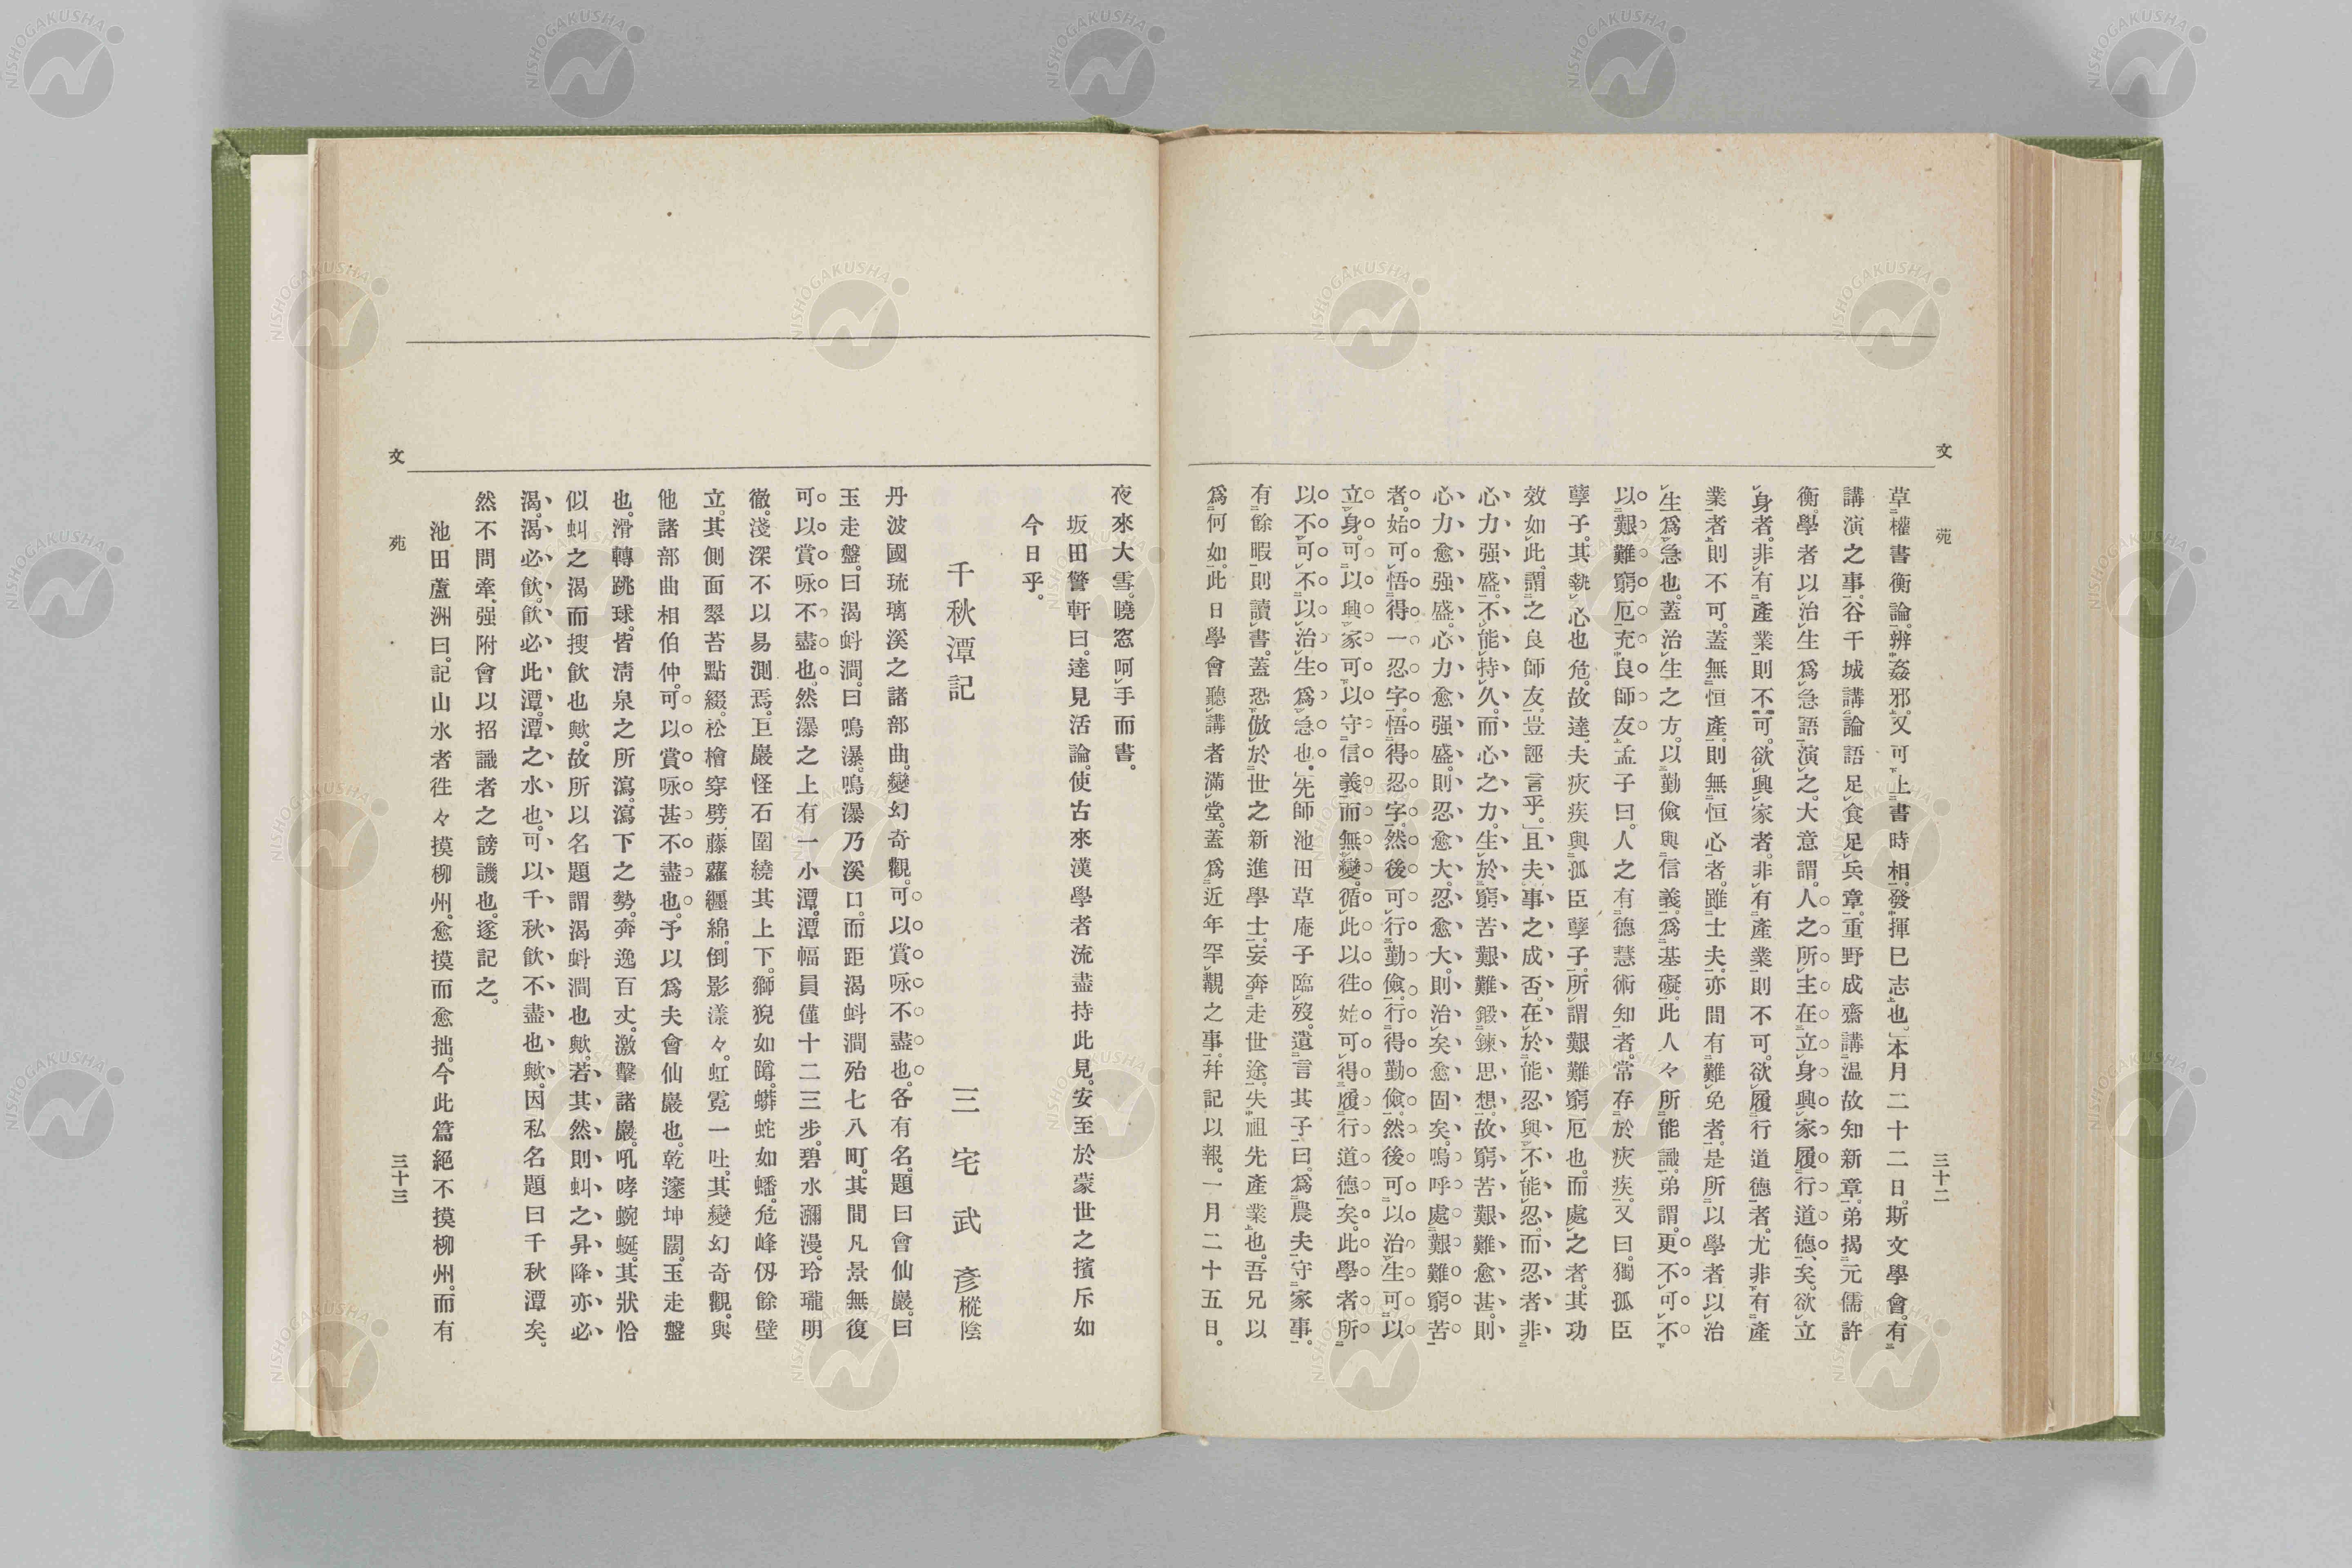 文 苑 三十二
草權書衡論。辨姦邪。又可上書時相。發揮巳志也。」本月二十二日。斯文學會。有
講演之事。谷千城講論語足食足兵章。重野成齋講温故知新章。弟揭元儒許
衡。學者以治生爲急語演之。大意謂。人之所主在立身興家履行道德、矣。欲立
身者。非有產業則不可。欲興家者。非有產業則不可。欲履行道德者。尤非有產
業者則不可。蓋無恒產。則無恒心者。雖士夫亦間有難免者。是所以學者以治
生爲急也。蓋治生之方。以勤儉與信義。爲基礎。此人々所能識。弟謂。更不可不
以艱難窮厄。充良師友。孟子曰。人之有德慧術知者。常存於疢疾。又曰。獨孤臣
孽子。其執心也危。故達。夫疢疾與孤臣孽子。所謂艱難窮厄也。而處之者。其功
效如此。謂之良師友。豈誣言乎。」且夫事之成否。在於能忍與不能忍。而忍者非
心力强盛。不能持久。而心之力。生於窮苦艱難鍛鍊思想。故窮苦艱難愈甚。則
心力愈强盛。心力愈强盛。則忍愈大。忍愈大。則治矣愈固矣。嗚呼處艱難窮苦
者。始可悟得一忍字。悟得忍字。然後可行勤儉。行得勤儉。然後可以治生。可以
立身。可以興家。可以守信義而無變。循此以徃。始可得履行道德矣。此學者所
以不可不以治生爲急也。」先師池田草庵子臨歿。遺言其子曰。爲農夫守家事。
有餘暇則讀書。蓋恐倣於世之新進學士。妄奔走世途。失祖先產業也。吾兄以
爲何如。此日學會聽講者滿堂。蓋爲近年罕觀之事。幷記以報。一月二十五日。
夜來大雪。曉窓呵手而書。
坂田警軒曰。達見活論。使古來漢學者流盡持此見。安至於蒙世之擯斥如
今日乎。
千秋潭記 三宅武彥樅陰
丹波國琉璃溪之諸部曲。變幻奇觀。可以賞咏不盡也。各有名。題曰會仙巖。曰
玉走盤。曰渴蚪澗。曰鳴瀑。鳴瀑乃溪口。而距渴蚪澗殆七八町。其間凡景無復
可以賞咏不盡也。然瀑之上有一小潭。潭幅員僅十二三步。碧水瀰漫。玲瓏明
徹。淺深不以易測焉。巨巖怪石圍繞其上下。獅猊如蹲。蟒蛇如蟠。危峰仭餘壁
立。其側面翠苔點綴。松檜穿劈。藤蘿纒綿。倒影漾々。虹霓一吐。其變幻奇觀。與
他諸部曲相伯仲。可以賞咏甚不盡也。予以爲夫會仙巖也。乾邃坤闊。玉走盤
也。滑轉跳球。皆淸泉之所瀉。瀉下之勢。奔逸百丈。激擊諸巖。吼哮蜿蜒。其狀恰
似虯之渴而搜飮也歟。故所以名題謂渴蚪澗也歟。若其然則虯之昇降亦必
渴。渴必飮。飮必此潭。潭之水也。可以千秋飮不盡也歟。因私名題曰千秋潭矣。
然不問牽强附會以招識者之謗譏也。遂記之。
池田蘆洲曰。記山水者徃々摸柳州。愈摸而愈拙。今此篇絕不摸柳州。而有
文 苑 三十三
NISHOGAKUSHA